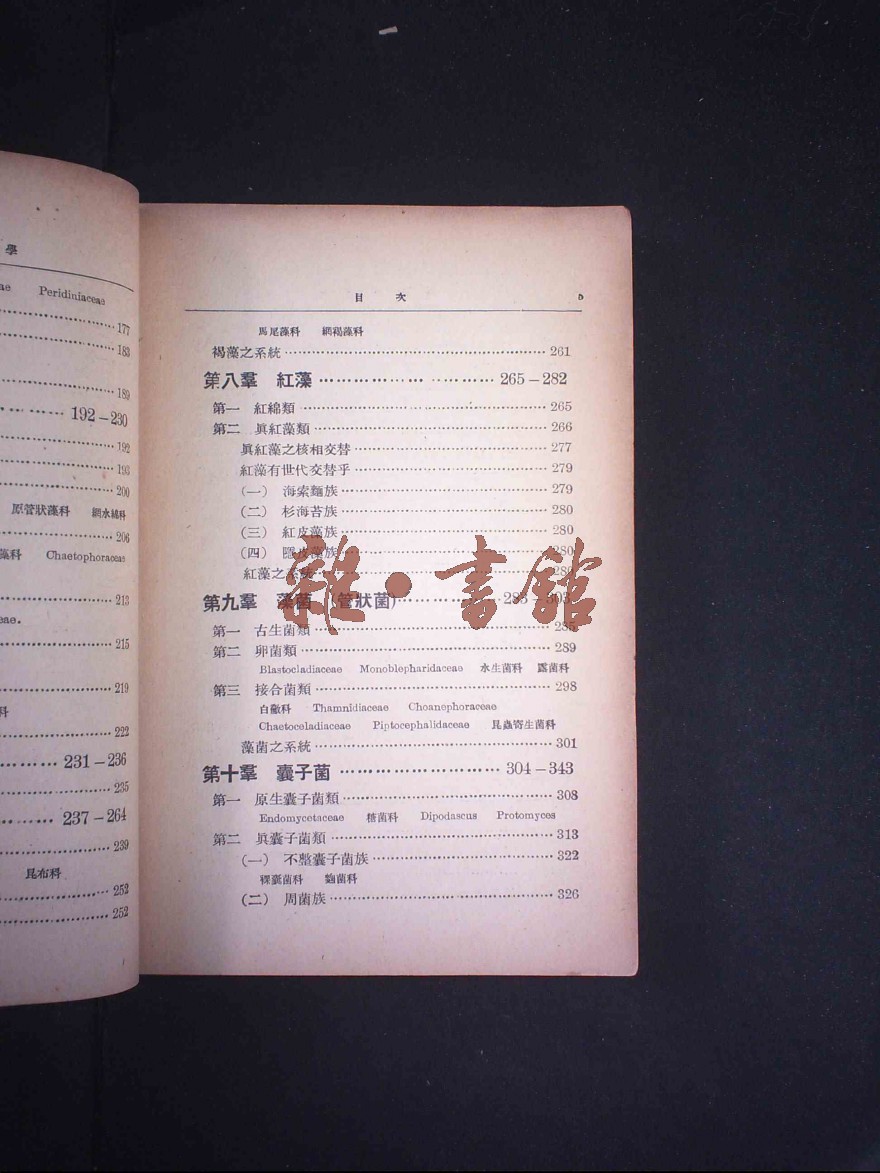 學
ae Peridiniaceae
177
183
189
192－230
192
193
200
原管狀藻科 網水綿科
206
藻科 Chaetophoraceae
213
eae.
215
219
科
222
231－236
235
237－264
239
昆布科
252
252
目 次 5
馬尾藻科 網褐藻科
褐藻之系統 261
第八羣 紅藻 265－282
第一 紅綿類 265
第二 眞紅藻類 266
眞紅藻之核相交替 277
紅藻有世代交替乎 279
(一) 海索麵族 279
(二) 杉海苔族 280
(三) 紅皮藻族 280
(四) 隱皮藻族 280
紅藻之系統 280
第九羣 藻菌 (管狀菌) 285－303
第一 古生菌類 285
第二 卵菌類 289
Blastocladiaceae Monoblepharidaceae 水生菌科 露菌科
第三 接合菌類 298
白黴科 Thamnidiaceae Choanephoraceae
Chaetocladiaceae Piptocephalidaceae 昆蟲寄生菌科
藻菌之系統 301
第十羣 囊子菌 304－343
第一 原生囊子菌類 308
Endomycetaceae 糖菌科 Dipodascus Protomyces
第二 眞囊子菌類 313
(一) 不整囊子菌族 322
裸囊菌科 麴菌科
(二) 周菌族 326
雜·書館